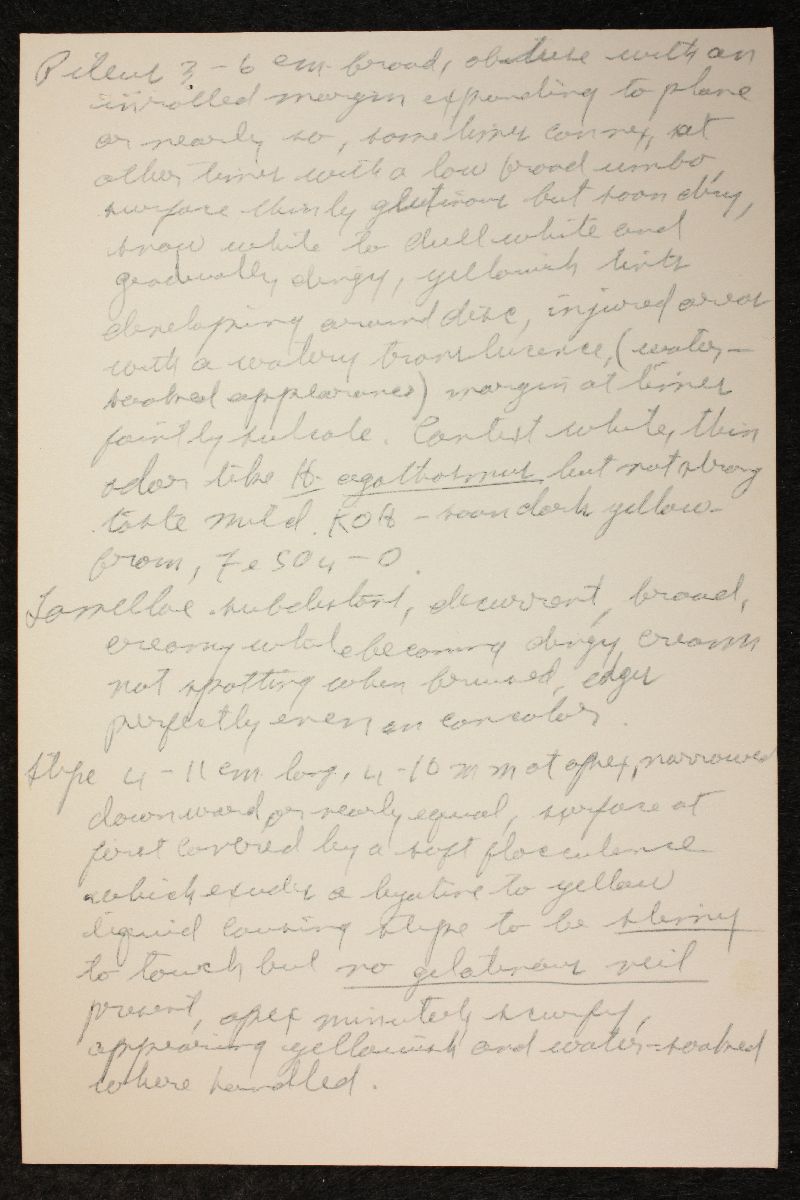 Pileus 3-6 cm broad, obtuse with an
inrolled margin expanding to plane
or nearly so, sometimes convex, at
other times with a low broad umbo,
surface thinly glutinous but soon dry,
snow white to dull white and
gradually dingy, yellowish tints
developing around disc, injured areas
with a watery translucence, (water-
soaked appearance) margin at times
faintly sulcate. Context white, thin
odor like H. agathosmus but not strong
taste mild. KOH - soon dark yellow-
brown, FeSO4 - O.
Lamellae subdistant, decurrent, broad,
creamy white becoming dingy cream
not spotting when bruised, edges
perfectly even an concolor.
Stipe 4-11 cm long, 4-10 mm at apex, narrowed
downward or nearly equal, surface at
first covered by a soft flocculence
which exudes a hyaline to yellow
liquid causing stipe to be slimy
to touch but no gelatinous veil
present, apex minutely scurfy,
appearing yellowish and water-soaked
where handled.